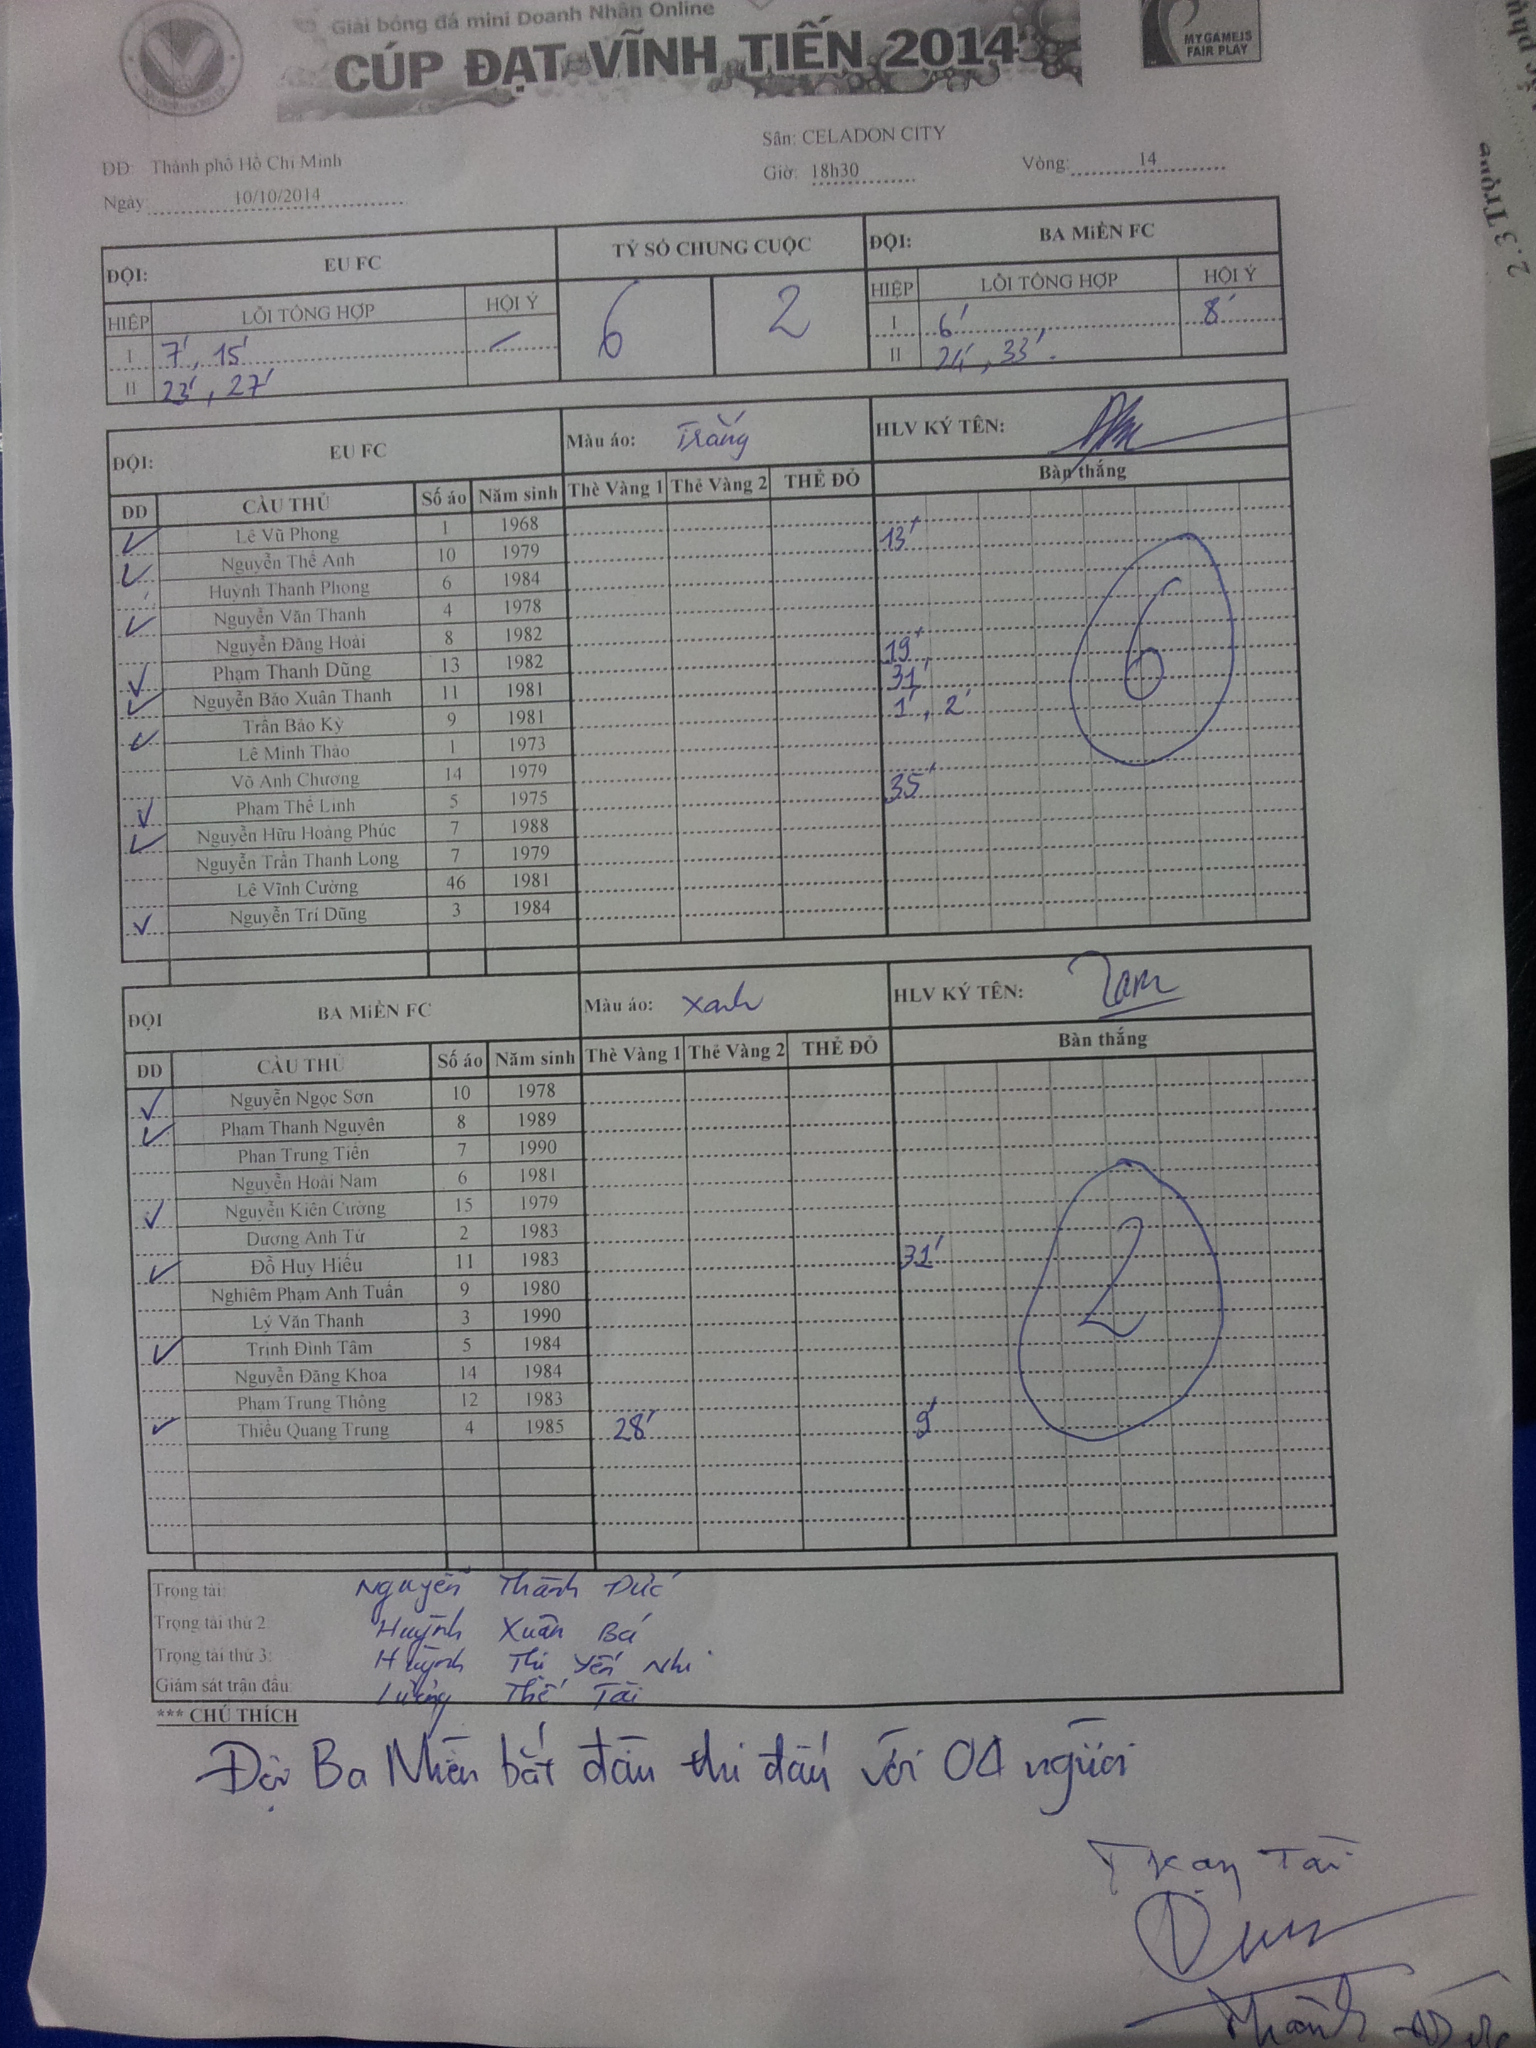 Giải bóng đá mini Doanh Nhân Online
CÚP ĐẠT VĨNH TIẾN 2014
MY GAME IS
FAIR PLAY
ĐĐ: Thành phố Hồ Chí Minh
Sân: CELADON CITY
Ngày: 10/10/2014
Giờ: 18h30
Vòng: 14
ĐỘI: EU FC
TỶ SỐ CHUNG CUỘC
ĐỘI: BA MiỀN FC
HIỆP LỖI TỔNG HỢP HỘI Ý
6 2
HIỆP LỖI TỔNG HỢP HỘI Ý
I 7', 15'
II 23', 27'
I 6' 8'
II 24', 33'.
ĐỘI: EU FC Màu áo: Trắng HLV KÝ TÊN:
DD CẦU THỦ Số áo Năm sinh Thẻ Vàng 1 Thẻ Vàng 2 THẺ ĐỎ Bàn thắng
Lê Vũ Phong 1 1968
Nguyễn Thế Anh 10 1979 13'
Huỳnh Thanh Phong 6 1984
Nguyễn Văn Thanh 4 1978
Nguyễn Đăng Hoài 8 1982
Phạm Thanh Dũng 13 1982 19'
Nguyễn Bảo Xuân Thanh 11 1981 31'
Trần Bảo Kỳ 9 1981 1', 2'
Lê Minh Thảo 1 1973
Võ Anh Chương 14 1979
Phạm Thế Linh 5 1975 35'
Nguyễn Hữu Hoàng Phúc 7 1988
Nguyễn Trần Thanh Long 7 1979
Lê Vĩnh Cường 46 1981
Nguyễn Trí Dũng 3 1984
6
ĐỘI BA MiỀN FC Màu áo: Xanh HLV KÝ TÊN: Tam
DD CẦU THỦ Số áo Năm sinh Thẻ Vàng 1 Thẻ Vàng 2 THẺ ĐỎ Bàn thắng
Nguyễn Ngọc Sơn 10 1978
Phạm Thanh Nguyên 8 1989
Phan Trung Tiến 7 1990
Nguyễn Hoài Nam 6 1981
Nguyễn Kiên Cường 15 1979
Dương Anh Tứ 2 1983
Đỗ Huy Hiếu 11 1983 31'
Nghiêm Phạm Anh Tuấn 9 1980
Lý Văn Thanh 3 1990
Trịnh Đình Tâm 5 1984
Nguyễn Đăng Khoa 14 1984
Phạm Trung Thông 12 1983
Thiều Quang Trung 4 1985 28' 9'
2
Trọng tài: Nguyễn Thành Đức
Trọng tài thứ 2 Huỳnh Xuân Bá
Trọng tài thứ 3: Huỳnh Thị Yến Nhi
Giám sát trận đấu: Lương Thế Tài
*** CHÚ THÍCH
Đội Ba Miền bắt đầu thi đấu với 04 người
Trọng Tài
Thành Đức
2.3 Trọng